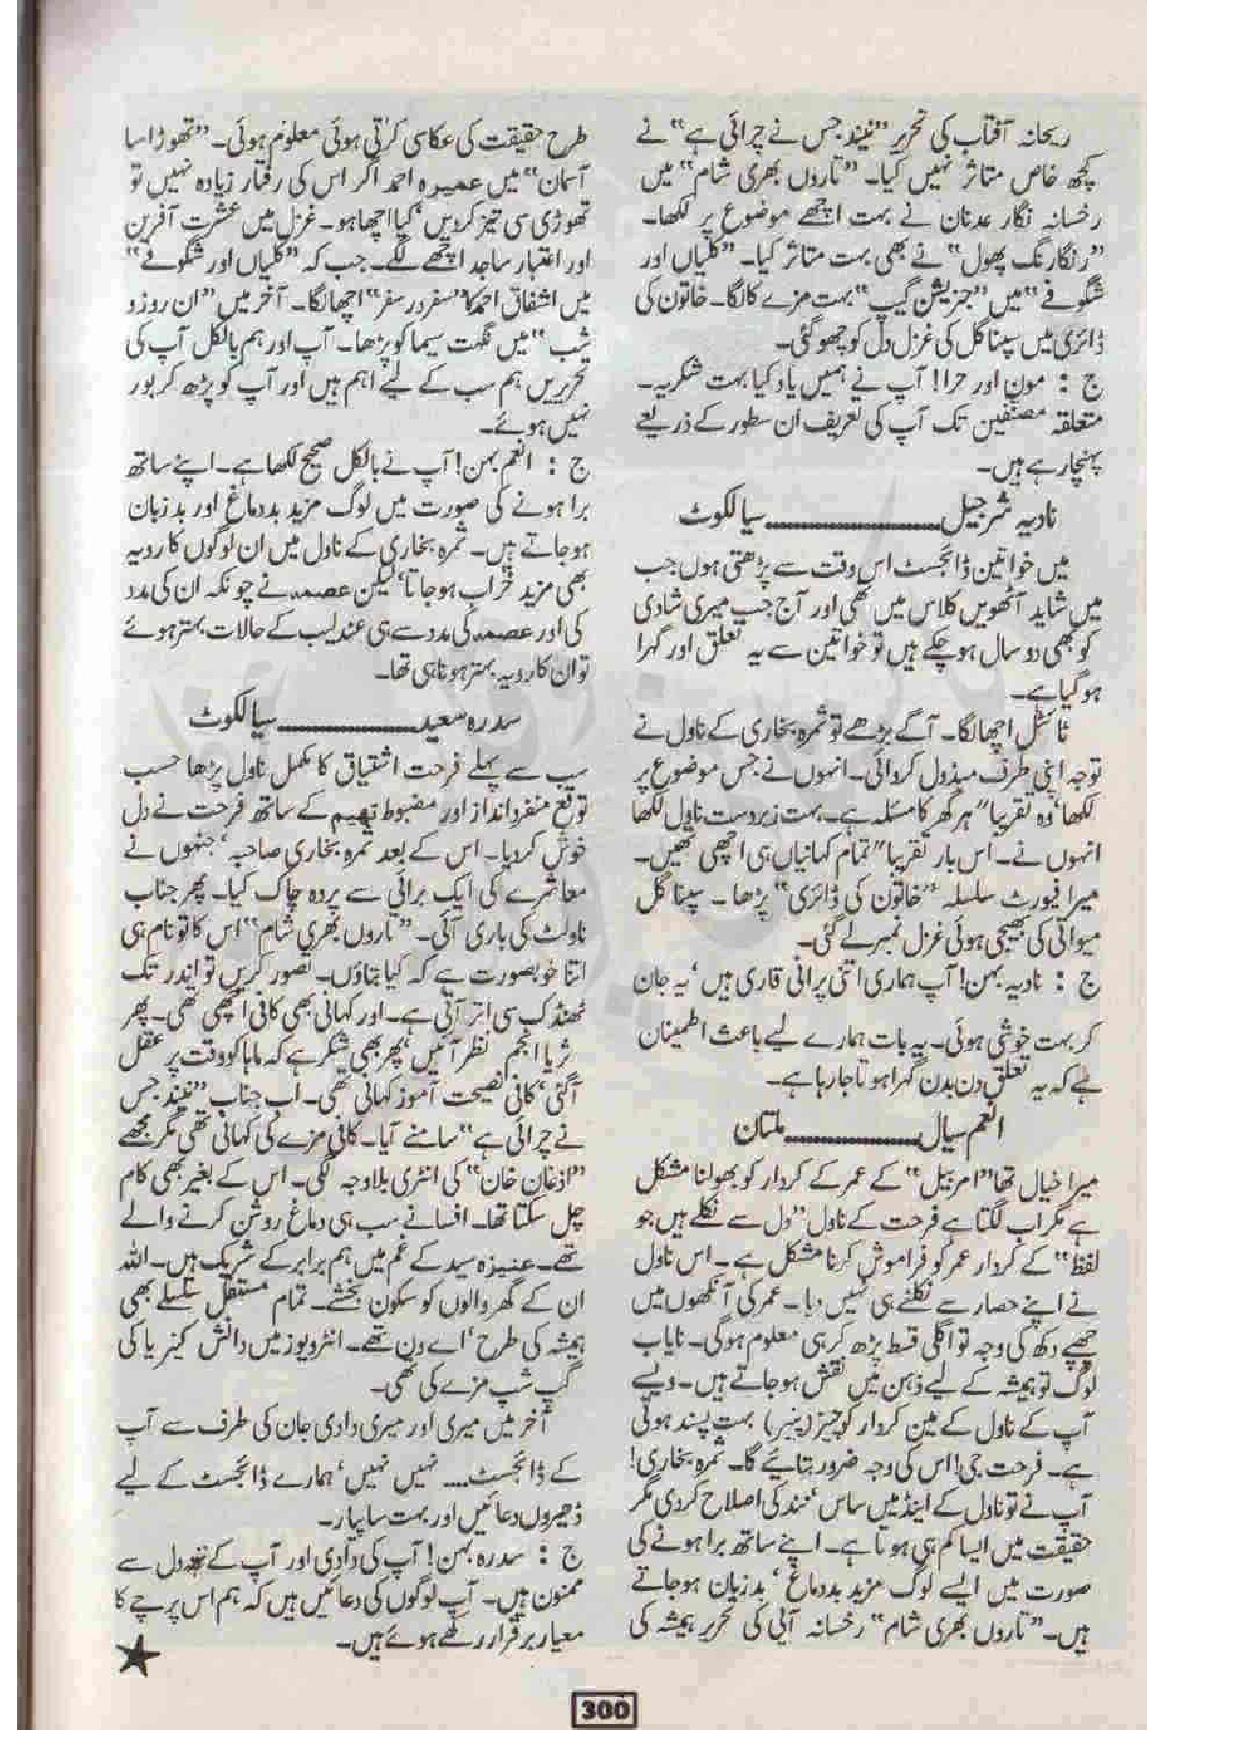 ریحانہ آفتاب کی تحریر "نیند جس نے چرائی ہے" نے
کچھ خاص متاثر نہیں کیا۔ "تاروں بھری شام" میں
رخسانہ نگار عدنان نے بہت اچھے موضوع پر لکھا۔
"رنگا رنگ پھول" نے بھی بہت متاثر کیا۔ "کلیاں اور
شگوفے" میں "جنریشن گیپ" بہت مزے کا لگا۔ خاتون کی
ڈائری میں سپنا گل کی غزل دل کو چھو گئی۔
ج : مون اور حرا! آپ نے ہمیں یاد کیا بہت شکریہ۔
متعلقہ مصنفین تک آپ کی تعریف ان سطور کے ذریعے
پہنچا رہے ہیں۔
نادیہ شرجیل۔۔۔۔۔۔۔۔۔۔سیالکوٹ
میں خواتین ڈائجسٹ اس وقت سے پڑھتی ہوں جب
میں شاید آٹھویں کلاس میں تھی اور آج جب میری شادی
کو بھی دو سال ہو چکے ہیں تو خواتین سے یہ تعلق اور گہرا
ہو گیا ہے۔
ٹائٹل اچھا لگا۔ آگے بڑھے تو ثمرہ بخاری کے ناول نے
توجہ اپنی طرف مبذول کروائی۔ انہوں نے جس موضوع پر
لکھا' وہ تقریبا" ہر گھر کا مسئلہ ہے۔ بہت زبردست ناول لکھا
انہوں نے۔ اس بار تقریبا" تمام کہانیاں ہی اچھی تھیں۔
میرا فیورٹ سلسلہ "خاتون کی ڈائری" پڑھا۔ سپنا گل
میوانی کی بھیجی ہوئی غزل نمبر لے گئی۔
ج : نادیہ بہن! آپ ہماری اتنی پرانی قاری ہیں' یہ جان
کر بہت خوشی ہوئی۔ یہ بات ہمارے لیے باعث اطمینان
ہے کہ یہ تعلق دن بدن گہرا ہوتا جا رہا ہے۔
انعم سیال۔۔۔۔۔۔۔۔۔۔ملتان
میرا خیال تھا "امربیل" کے عمر کے کردار کو بھولنا مشکل
ہے مگر اب لگتا ہے فرحت کے ناول "دل سے نکلے ہیں جو
لفظ" کے کردار عمر کو فراموش کرنا مشکل ہے۔ اس ناول
نے اپنے حصار سے نکلنے ہی نہیں دیا۔ عمر کی آنکھوں میں
چھپے دکھ کی وجہ تو اگلی قسط پڑھ کر ہی معلوم ہوگی۔ نایاب
لوگ تو ہمیشہ کے لیے ذہن میں نقش ہو جاتے ہیں۔ ویسے
آپ کے ناول کے مین کردار کو چیز (پنیر) بہت پسند ہوتی
ہے۔ فرحت جی! اس کی وجہ ضرور بتائیے گا۔ ثمرہ بخاری!
آپ نے تو ناول کے اینڈ میں ساس' نند کی اصلاح کر دی مگر
حقیقت میں ایسا کم ہی ہوتا ہے۔ اپنے ساتھ برا ہونے کی
صورت میں ایسے لوگ مزید بد دماغ' بد زبان ہو جاتے
ہیں۔ "تاروں بھری شام" رخسانہ آپی کی تحریر ہمیشہ کی
طرح حقیقت کی عکاسی کرتی ہوئی معلوم ہوئی۔ "تھوڑا سا
آسمان" میں عمیرہ احمد اگر اس کی رفتار زیادہ نہیں تو
تھوڑی سی تیز کر دیں' کیا اچھا ہو۔ غزل میں عشرت آفرین
اور اعتبار ساجد اچھے لگے۔ جب کہ "کلیاں اور شگوفے"
میں اشفاق احمد کا "سفر در سفر" اچھا لگا۔ آخر میں "ان روز و
شب" میں نگہت سیما کو پڑھا۔ آپ اور ہم بالکل آپ کی
تحریریں ہم سب کے لیے اہم ہیں اور آپ کو پڑھ کر بور
نہیں ہوئے۔
ج : انعم بہن! آپ نے بالکل صحیح لکھا ہے۔ اپنے ساتھ
برا ہونے کی صورت میں لوگ مزید بد دماغ اور بد زبان
ہو جاتے ہیں۔ ثمرہ بخاری کے ناول میں ان لوگوں کا رویہ
بھی مزید خراب ہو جاتا' لیکن عصمہ نے چونکہ ان کی مدد
کی اور عصمہ کی مدد سے ہی عندلیب کے حالات بہتر ہوئے
تو ان کا رویہ بہتر ہونا ہی تھا۔
سدرہ سعید۔۔۔۔۔۔۔۔۔۔سیالکوٹ
سب سے پہلے فرحت اشتیاق کا مکمل ناول پڑھا حسب
توقع منفرد انداز اور مضبوط تھیم کے ساتھ فرحت نے دل
خوش کر دیا۔ اس کے بعد ثمرہ بخاری صاحبہ' جنہوں نے
معاشرے کی ایک برائی سے پردہ چاک کیا۔ پھر جناب
ناولٹ کی باری آئی۔ "تاروں بھری شام" اس کا تو نام ہی
اتنا خوبصورت ہے کہ کیا بتاؤں۔ تصور کریں تو اندر تک
ٹھنڈک سی اتر آتی ہے۔ اور کہانی بھی کافی اچھی تھی۔ پھر
ثریا انجم نظر آئیں' پھر بھی شکر ہے کہ ماہا کو وقت پر عقل
آگئی' کافی نصیحت آموز کہانی تھی۔ اب جناب "نیند جس
نے چرائی ہے" سامنے آیا۔ کافی مزے کی کہانی تھی مگر مجھے
"اذعان خان" کی انٹری بلاوجہ لگی۔ اس کے بغیر بھی کام
چل سکتا تھا۔ افسانے سب ہی دماغ روشن کرنے والے
تھے۔ عنیزہ سید کے غم میں ہم برابر کے شریک ہیں۔ اللہ
ان کے گھر والوں کو سکون بخشے۔ تمام مستقل سلسلے بھی
ہمیشہ کی طرح' اے ون تھے۔ انٹرویوز میں دانش کنیریا کی
گپ شپ مزے کی تھی۔
آخر میں میری اور میری دادی جان کی طرف سے آپ
کے ڈائجسٹ۔۔۔ نہیں نہیں' ہمارے ڈائجسٹ کے لیے
ڈھیروں دعائیں اور بہت سا پیار۔
ج : سدرہ بہن! آپ کی دادی اور آپ کے تہہ دل سے
ممنون ہیں۔ آپ لوگوں کی دعائیں ہیں کہ ہم اس پرچے کا
معیار برقرار رکھے ہوئے ہیں۔
300